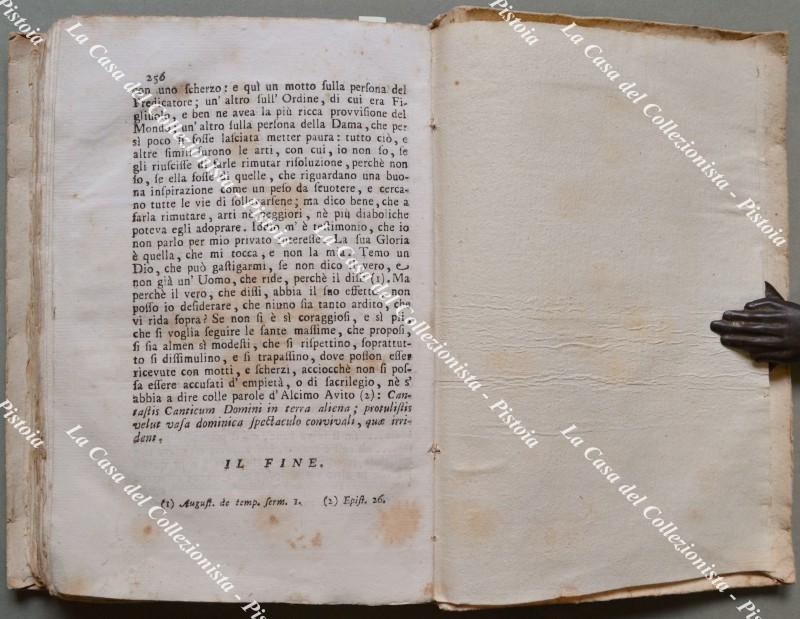 256
con uno ſcherzo: e quì un motto ſulla perſona del
Predicatore; un' altro ſull' Ordine, di cui era Fi-
gliuolo, e ben ne avea la più ricca provviſione del
Mondo; un' altro ſulla perſona della Dama, che per
sì poco ſi foſſe laſciata metter paura: tutto ciò, e
altre ſimili furono le arti, con cui, io non ſo, ſe
gli riuſciſſe di farle rimutar riſoluzione, perchè non
ſo, ſe ella foſſe di quelle, che riguardano una buo-
na inſpirazione come un peſo da ſcuotere, e cerca-
no tutte le vie di ſollevarſene; ma dico bene, che a
farla rimutare, arti nè peggiori, nè più diaboliche
poteva egli adoprare. Iddio m' è teſtimonio, che io
non parlo per mio privato intereſſe. La ſua Gloria
è quella, che mi tocca, e non la mia. Temo un
Dio, che può gaſtigarmi, ſe non dico il vero, e
non già un' Uomo, che ride, perchè il diſſi (1). Ma
perchè il vero, che diſſi, abbia il ſuo effetto, non
poſſo io deſiderare, che niuno ſia tanto ardito, che
vi rida ſopra? Se non ſi è sì coraggioſi, e sì pii,
che ſi voglia ſeguire le ſante maſſime, che propoſi,
ſi ſia almen sì modeſti, che ſi riſpettino, ſoprattut-
to ſi diſſimulino, e ſi trapaſſino, dove poſſon eſſer
ricevute con motti, e ſcherzi, acciocchè non ſi poſ-
ſa eſſere accuſati d' empietà, o di ſacrilegio, nè s'
abbia a dire colle parole d'Alcimo Avito (2): Can-
taſtis Canticum Domini in terra aliena; protuliſtis
velut vaſa dominica ſpectaculo convivali, quæ irri-
dent.
IL FINE.
(1) Auguſt. de temp. ſerm. 1. (2) Epiſt. 26.
La Casa del Collezionista - Pistoia
La Casa del Collezionista - Pistoia
La Casa del Collezionista - Pistoia
La Casa del Collezionista - Pistoia
La Casa del Collezionista - Pistoia
La Casa del Collezionista - Pistoia